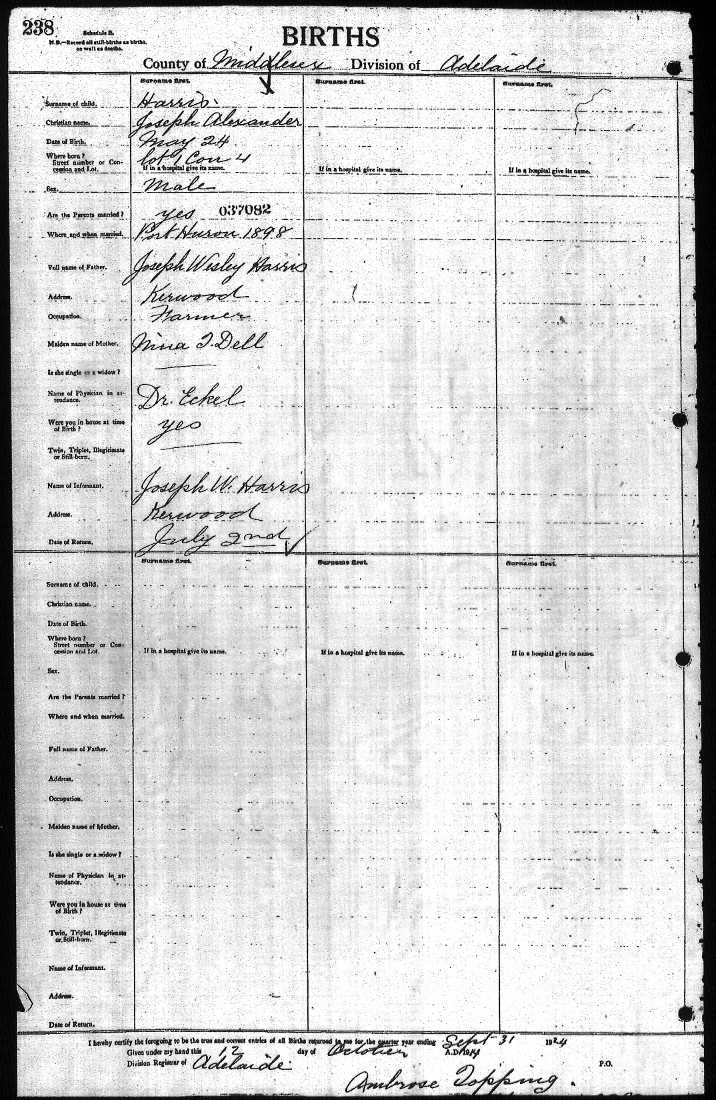 238
Schedule B.
N.B.—Record all still-births as births,
as well as deaths.
BIRTHS
County of Middlesex Division of Adelaide
Surname first. Surname first. Surname first.
Surname of child. Harris
Christian name. Joseph Alexander
Date of Birth. May 24
Where born? lot 1 Con 4
Street number or Con-
cession and Lot. If in a hospital give its name. If in a hospital give its name. If in a hospital give its name.
Sex. Male
Are the Parents married? yes 037082
Where and when married. Port Huron 1898
Full name of Father. Joseph Wesley Harris
Address. Kerwood
Occupation. Farmer
Maiden name of Mother. Nina I. Dell
Is she single or a widow? —
Name of Physician in at-
tendance. Dr. Eckel
Were you in house at time
of Birth? yes
Twin, Triplet, Illegitimate
or Still-born. —
Name of Informant. Joseph W. Harris
Address. Kerwood
Date of Return. July 2nd
Surname first. Surname first. Surname first.
Surname of child.
Christian name.
Date of Birth.
Where born?
Street number or Con-
cession and Lot. If in a hospital give its name. If in a hospital give its name. If in a hospital give its name.
Sex.
Are the Parents married?
Where and when married.
Full name of Father.
Address.
Occupation.
Maiden name of Mother.
Is she single or a widow?
Name of Physician in at-
tendance.
Were you in house at time
of Birth?
Twin, Triplet, Illegitimate
or Still-born.
Name of Informant.
Address.
Date of Return.
I hereby certify the foregoing to be the true and correct entries of all Births returned to me for the quarter year ending Sept 31 1924
Given under my hand this 12 day of October A.D. 19
Division Registrar of Adelaide P.O.
Ambrose Topping.